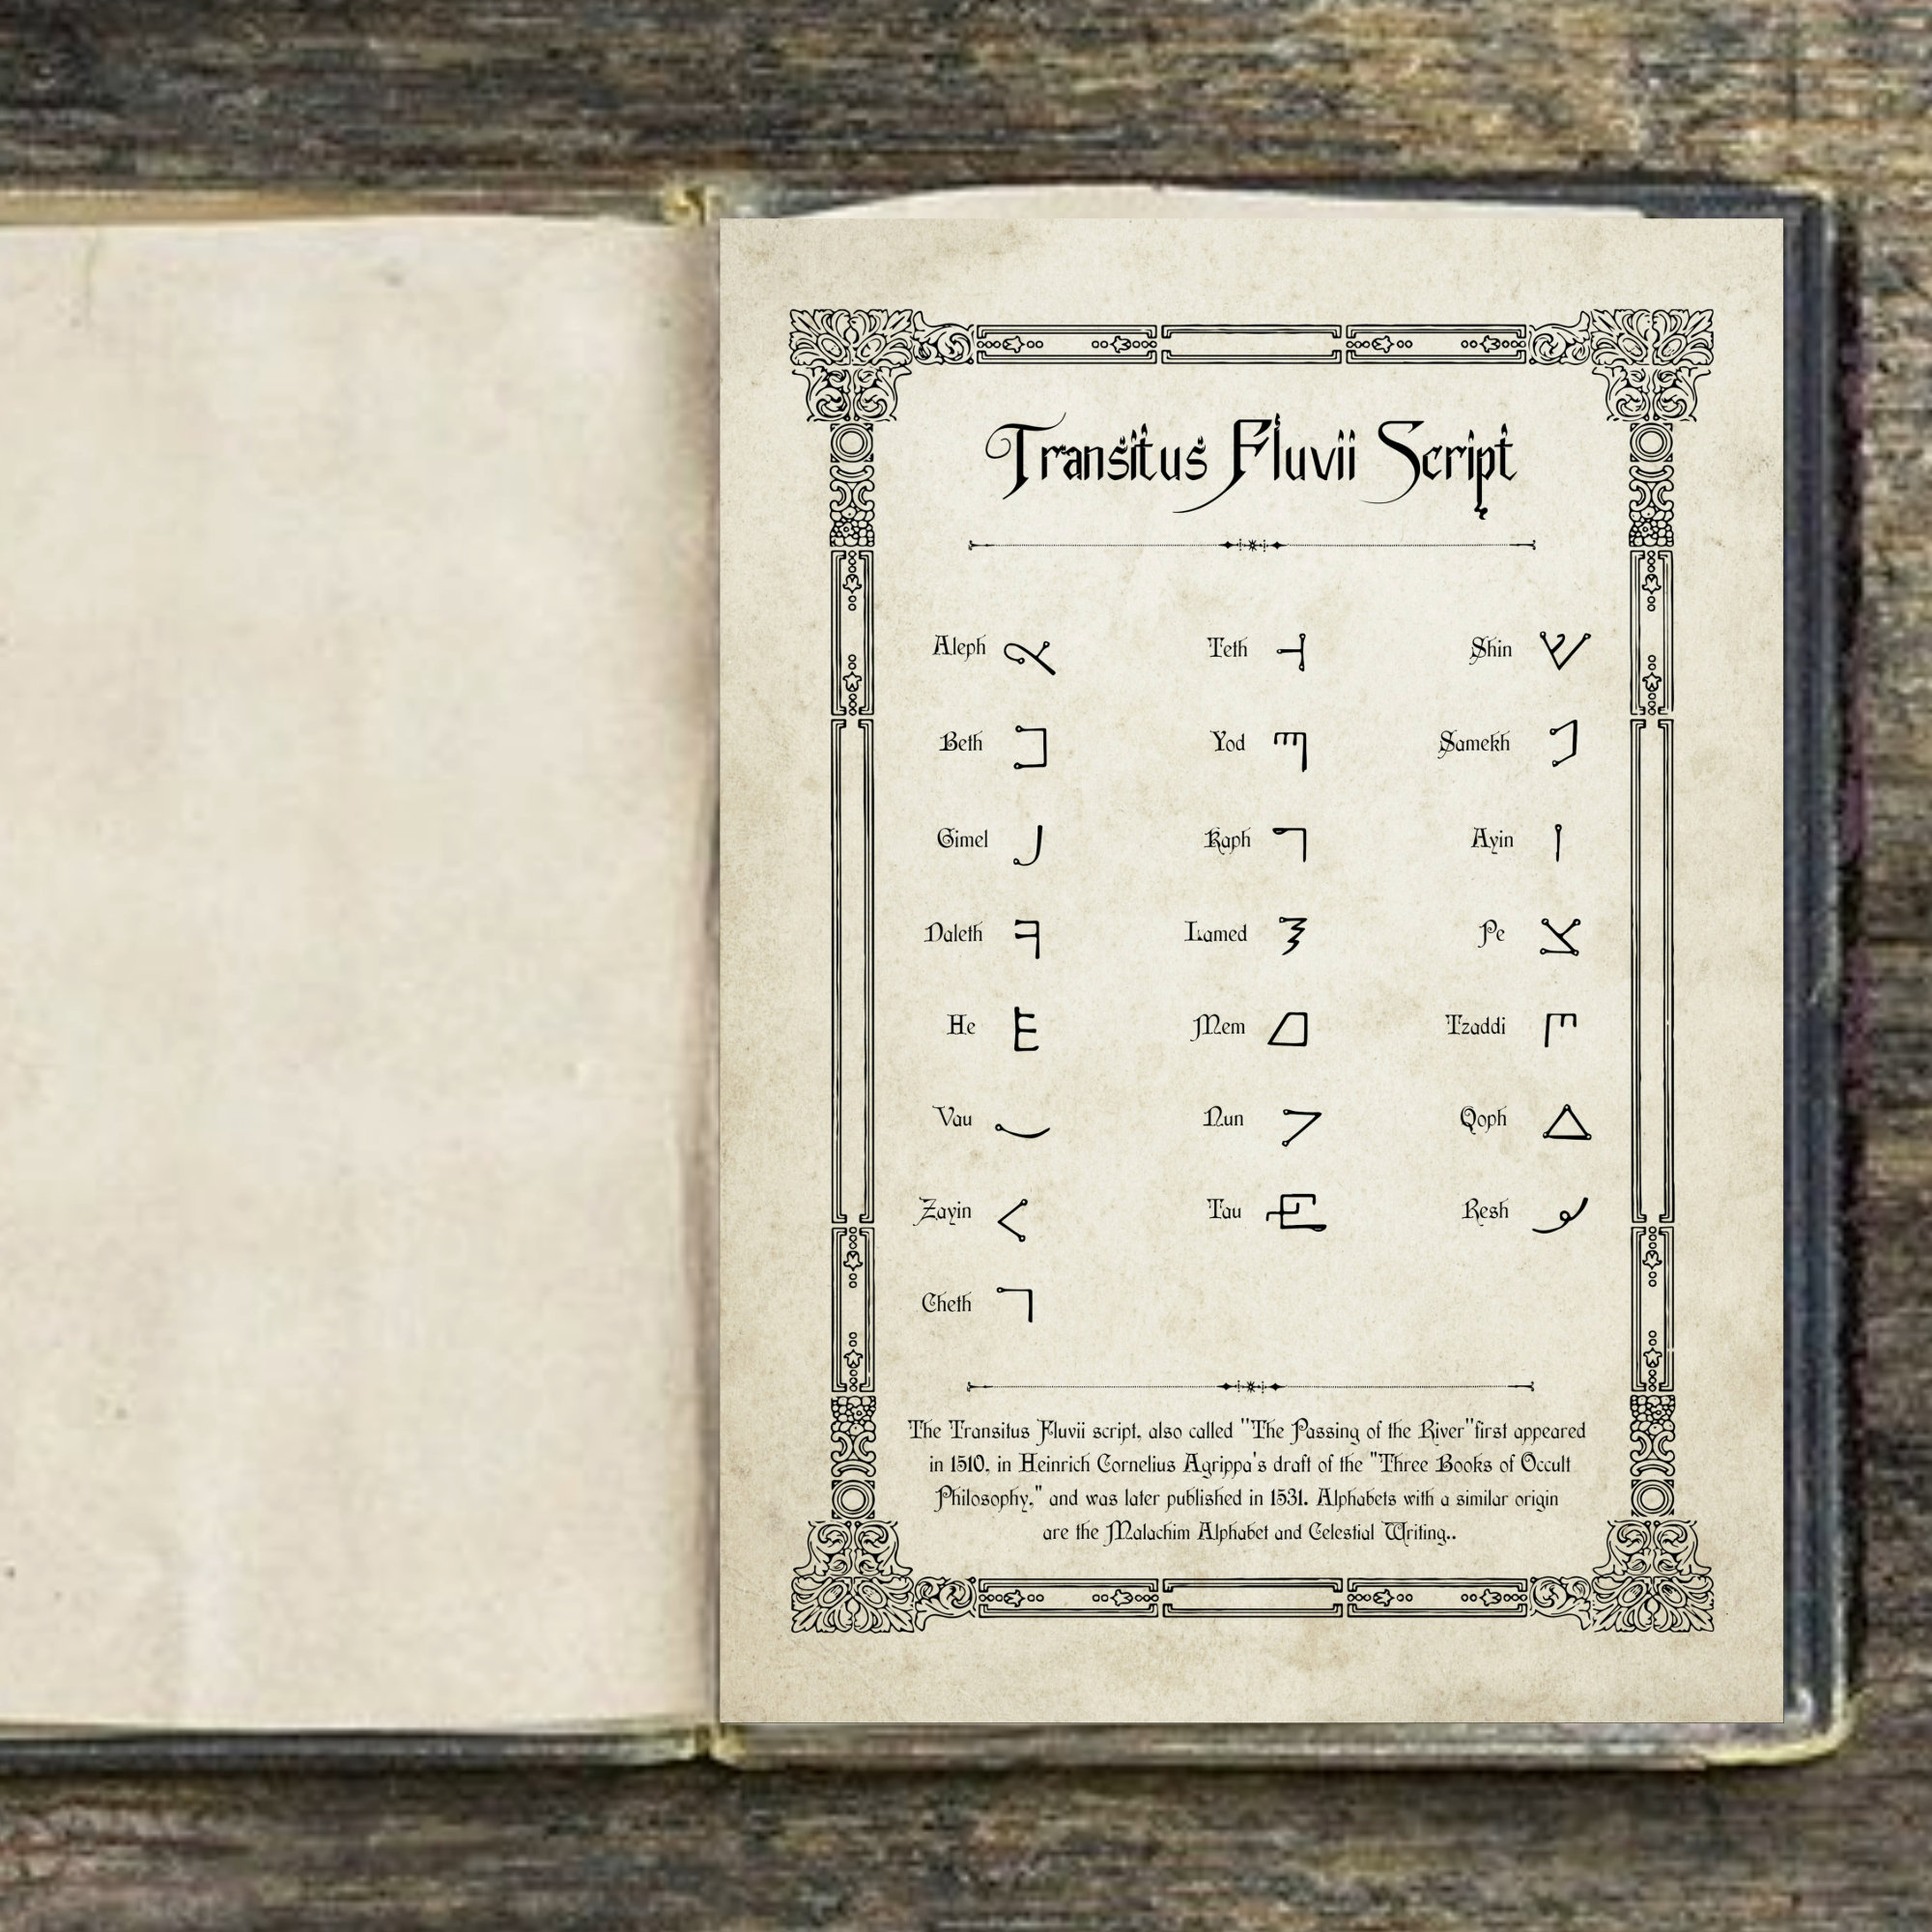 Transitus Fluvii Script
Aleph
Beth
Gimel
Daleth
He
Vau
Zayin
Cheth
Teth
Yod
Kaph
Lamed
Mem
Nun
Tau
Shin
Samekh
Ayin
Pe
Tzaddi
Qoph
Resh
The Transitus Fluvii script, also called "The Passing of the River"first appeared
in 1510, in Heinrich Cornelius Agrippa's draft of the "Three Books of Occult
Philosophy," and was later published in 1531. Alphabets with a similar origin
are the Malachim Alphabet and Celestial Writing..